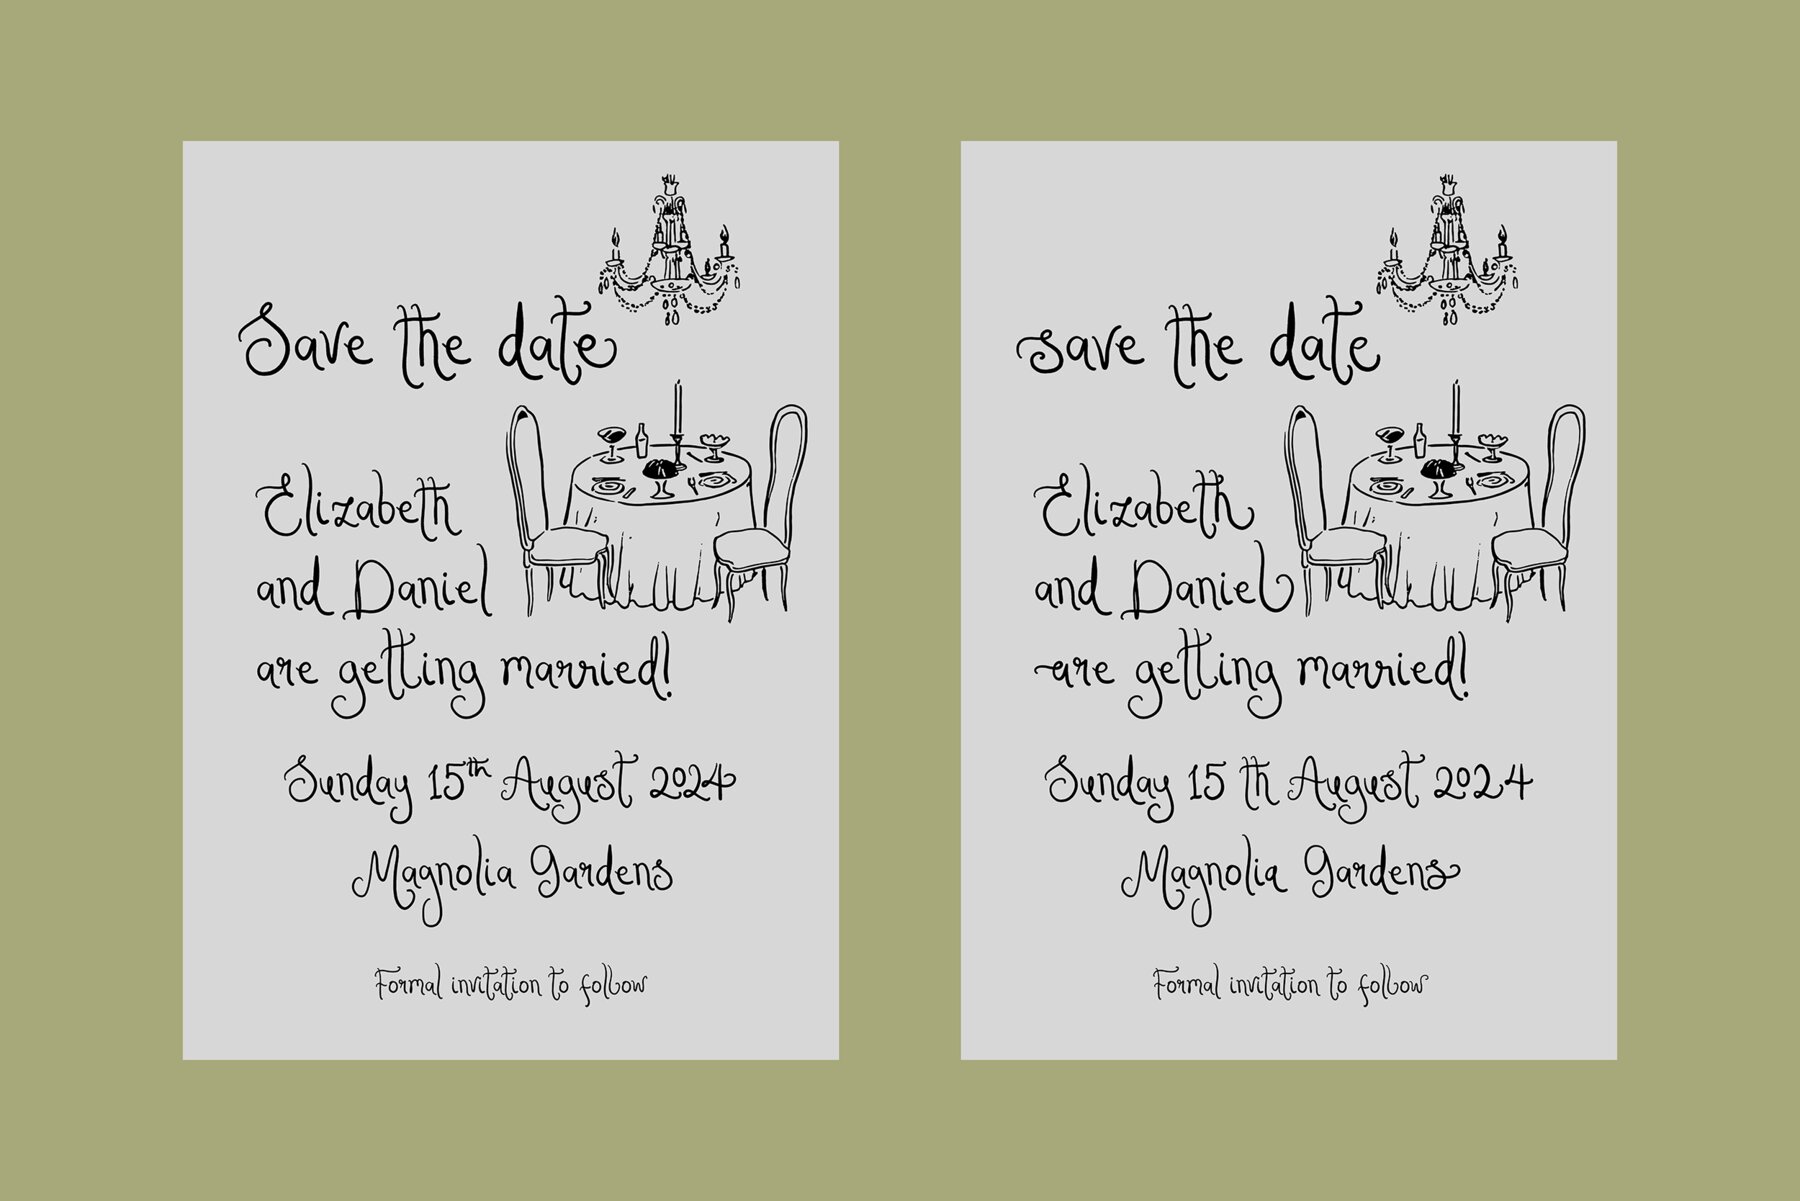 Save the date
Elizabeth
and Daniel
are getting married!
Sunday 15th August 2024
Magnolia Gardens
Formal invitation to follow
save the date
Elizabeth
and Daniel
are getting married!
Sunday 15 th August 2024
Magnolia Gardens
Formal invitation to follow